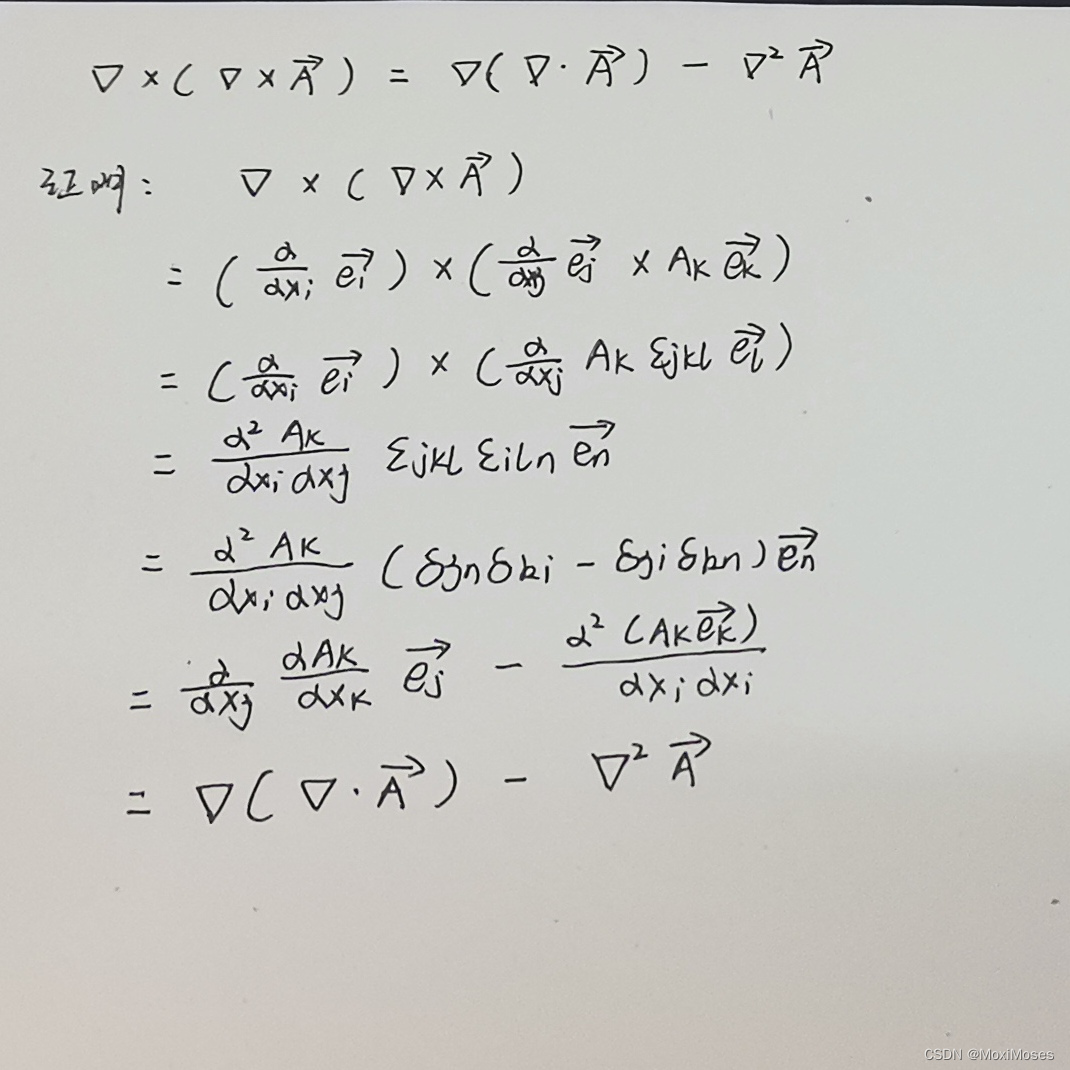 ∇ × ( ∇ × A⃗ ) = ∇( ∇ · A⃗ ) − ∇² A⃗
证明: ∇ × ( ∇ × A⃗ )
= ( ∂/∂xi e⃗i ) × ( ∂/∂xj e⃗j × Ak e⃗k )
= ( ∂/∂xi e⃗i ) × ( ∂/∂xj Ak εjkl e⃗l )
= ∂² Ak / ∂xi ∂xj εjkl εiln e⃗n
= ∂² Ak / ∂xi ∂xj ( δjn δki − δji δkn ) e⃗n
= ∂/∂xj ∂Ak/∂xk e⃗j − ∂² (Ak e⃗k) / ∂xi ∂xi
= ∇( ∇ · A⃗ ) − ∇² A⃗
CSDN @MoxiMoses